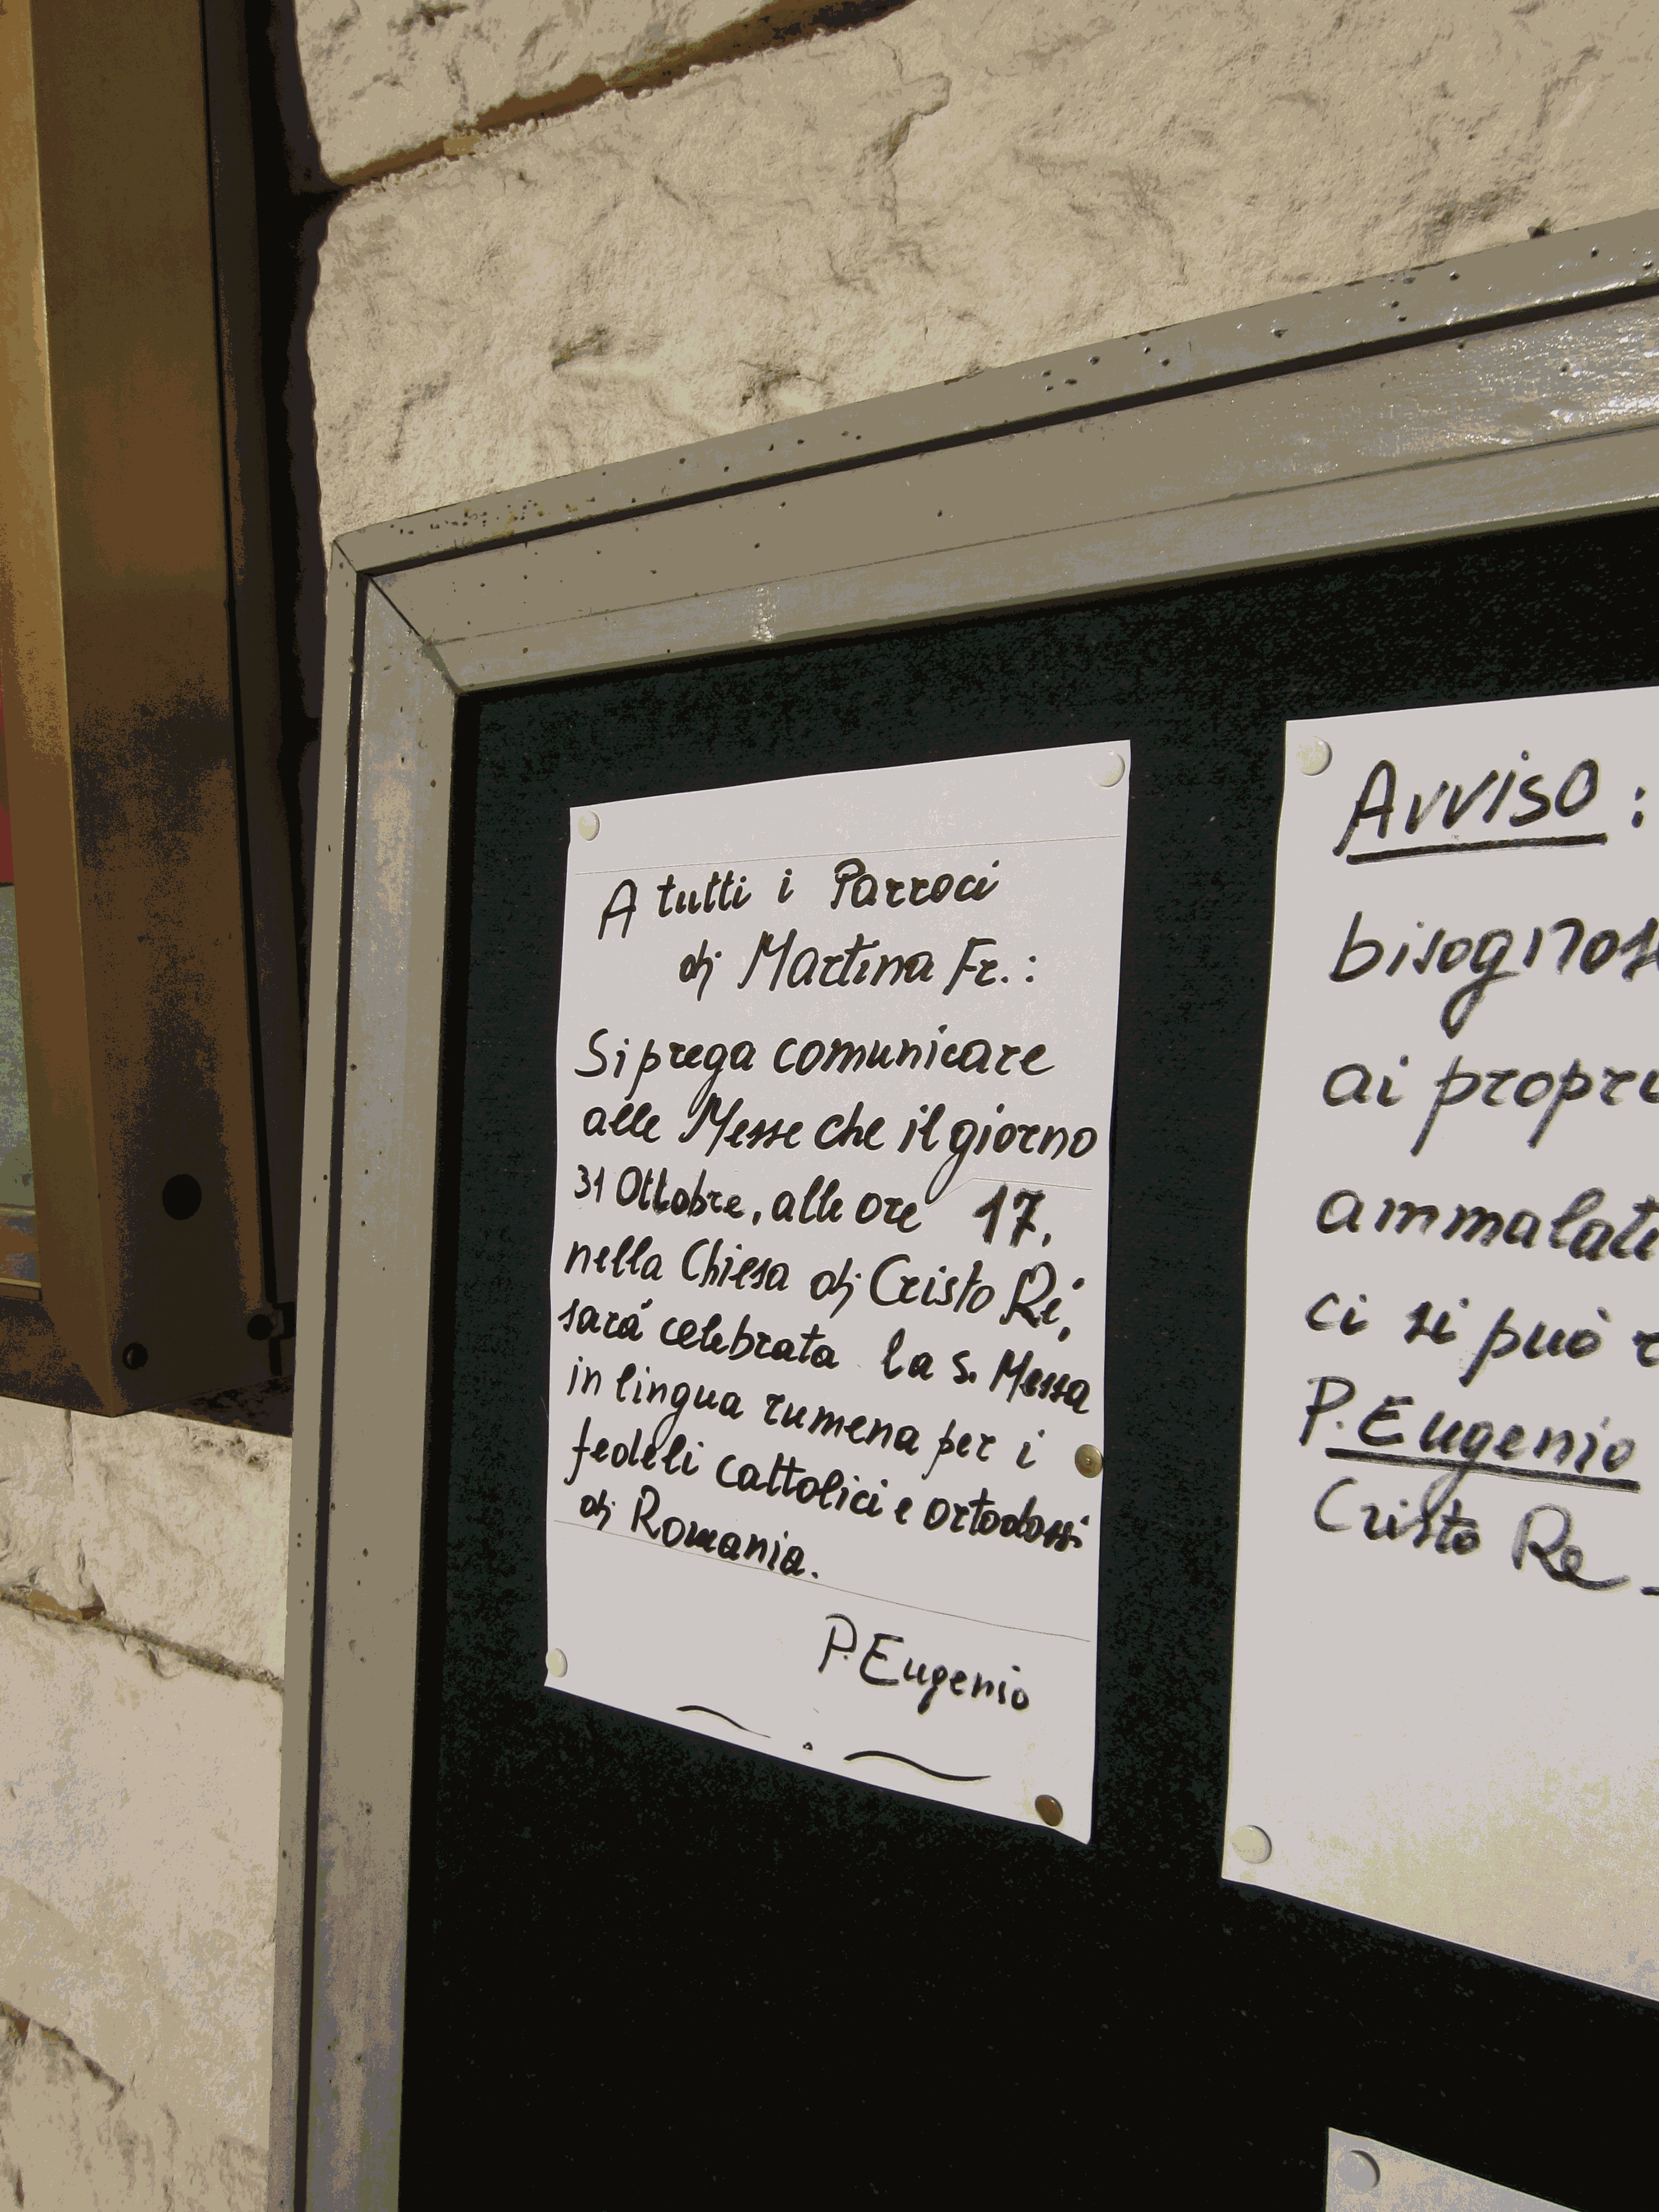 A tutti i Parroci
di Martina Fr.:
Si prega comunicare
alle Messe che il giorno
31 Ottobre, alle ore 17,
nella Chiesa di Cristo Ré,
sará celebrata la S. Messa
in lingua rumena per i
fedeli cattolici e ortodossi
di Romania.
P. Eugenio
Avviso :
bisognos
ai propri
ammalati
ci si può
P. Eugenio
Cristo Re -